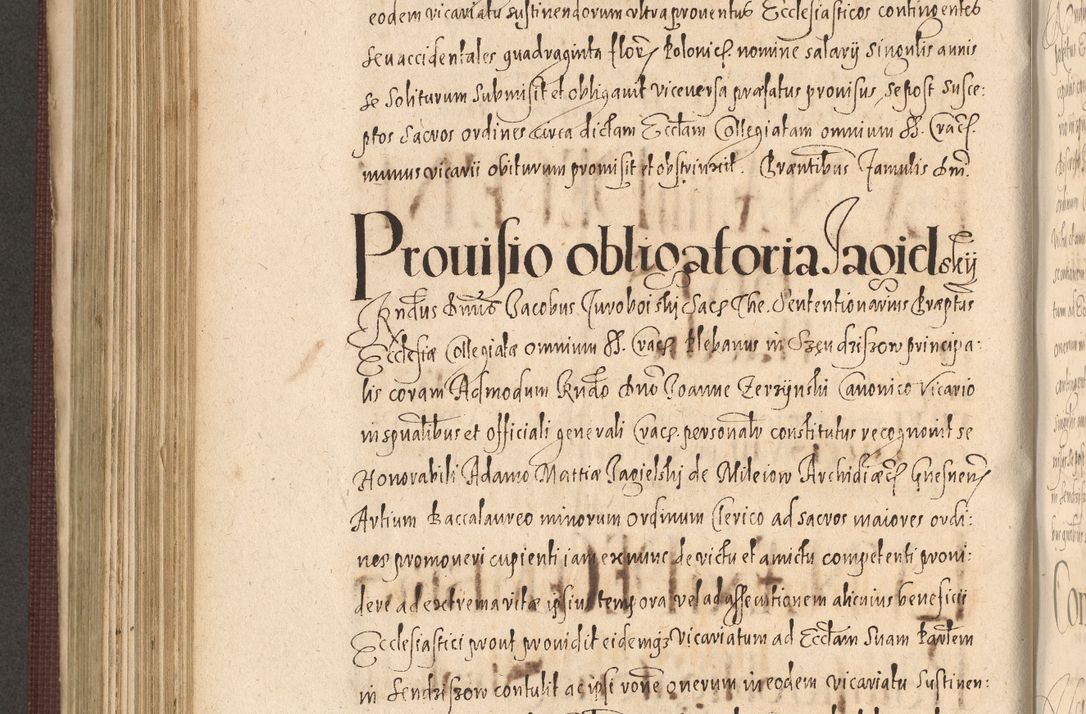 eodem vicariatu sustinendorum ultra proventus Ecclesiasticos contingentes
seu accidentales quadraginta flor Polonic nomine salarij singulis annis
se soliturum submisit et obligauit viceversa præfatus provisus, se post susce:
ptos sacros ordines circa dictam Ecctam Collegiatam omnium SS. Crac.
munus vicarii obiturum promisit et obstrinxit. Præntibus famulis dni.
Prouisio obligatoria Jagidskij
Rndus dnus Jacobus Juroboiski Sac The. Sententionarius Præptus
Ecclesiæ Collegiatæ omnium SS. Crac Plebanus in Szęndziszow principa:
lis coram Admodum Rndo dno Joanne Zerzynski Canonico Vicario
in spualibus et officiali generali Crac. personalr constitutus recognovit se
Honorabili Adamo Mattiæ Jagielskj de Mileiow Archidiæc Gnesnen
Artium Baccalaureo minorum ordinum Clerico ad sacros maiores ordi:
nes promoveri cupienti iam ex nunc de victu et amictu competenti provi:
dere ad extrema vitæ ipsius tempora vel ad assecutionem alicuius beneficii
Ecclesiastici prout providit eidemqs vicariatum ad Ecctam suam Partem
in Sendziszow contulit ac ipsi rone onerum in eodem vicariatu sustinen: